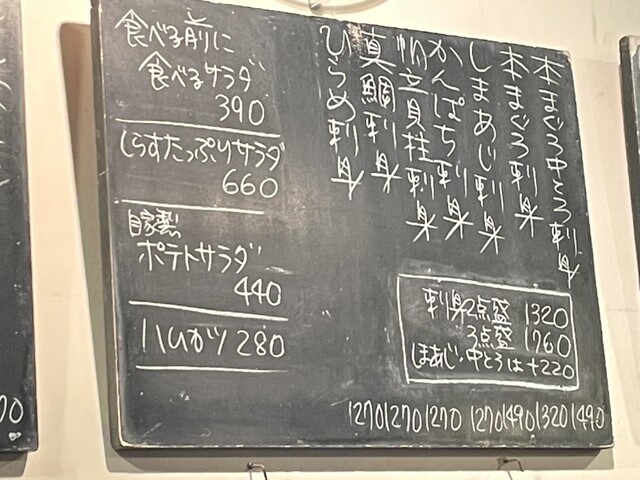 食べる前に
食べるサラダ
390
しらすたっぷりサラダ
660
自家製
ポテトサラダ
440
ハムカツ 280
本まぐろ中とろ刺身
本まぐろ刺身
しまあじ刺身
かんぱち刺身
帆立貝柱刺身
真鯛刺身
ひらめ刺身
刺身2点盛 1320
3点盛 1760
しまあじ・中とろは+220
1270 1270 1270 1270 1490 1320 1490